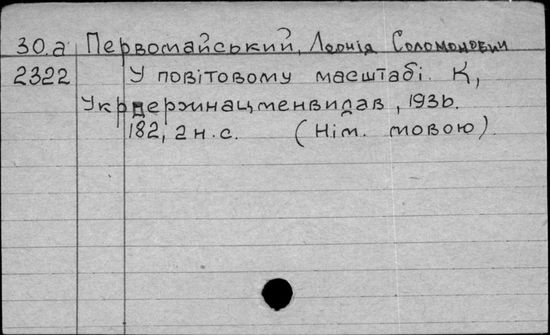 30.а Первомайський, Леонід Соломонович
2322 У повітовому масштабі. К,
Укрдержнацменвидав, 1936.
182, 2 н.с. (Нім. мовою).